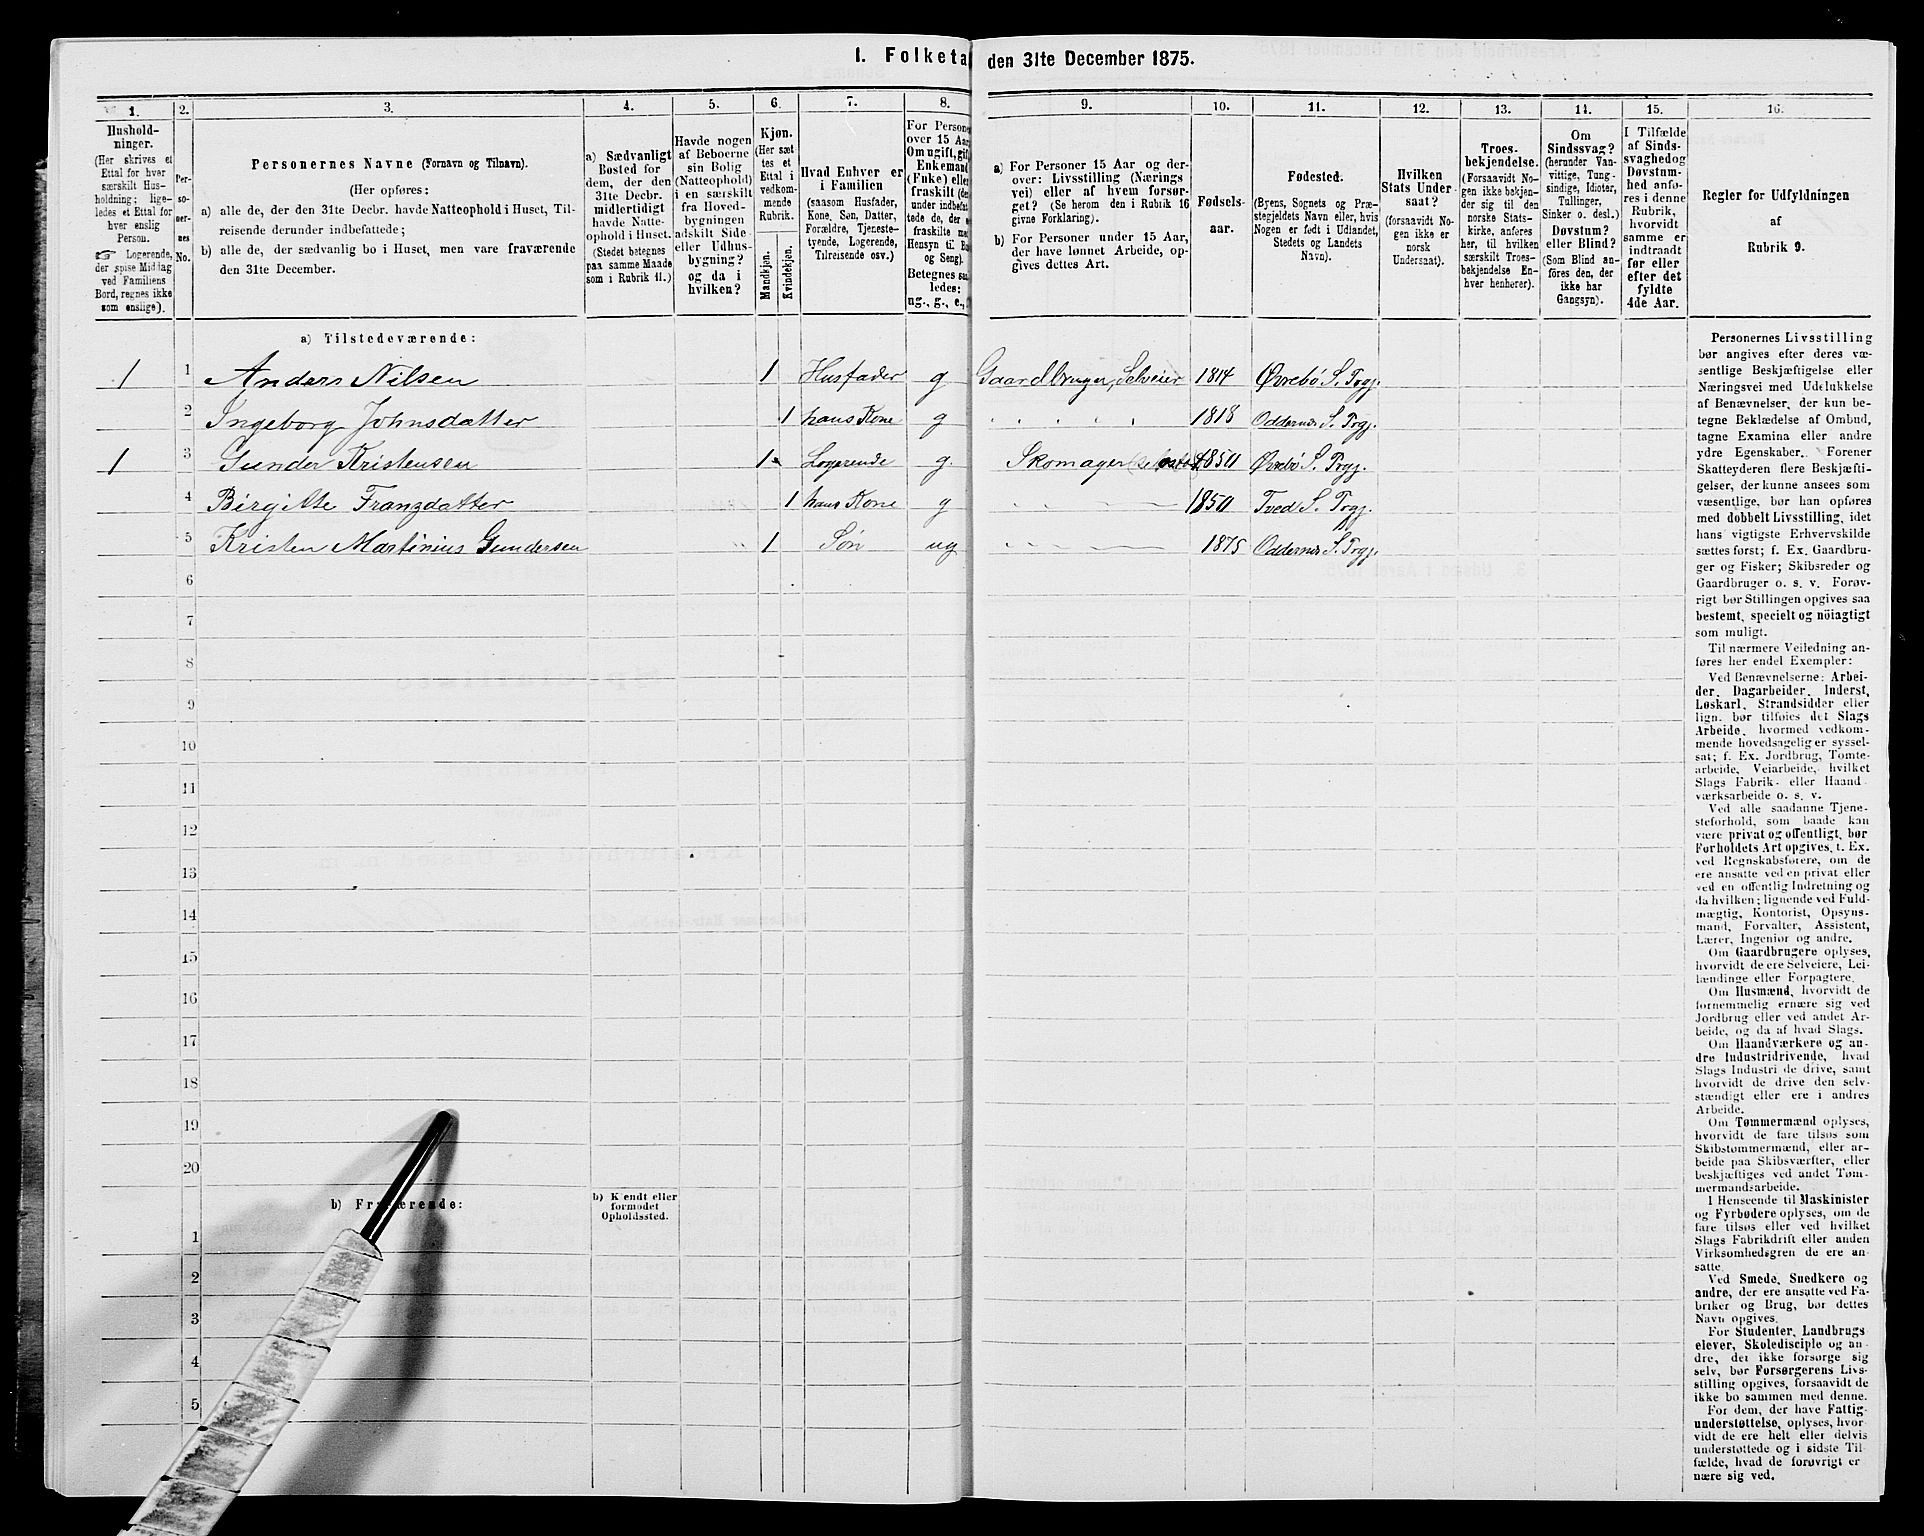 I. Folketa den 31te December 1875.
1. 2. 3. 4. 5. 6. 7. 8. 9. 10. 11. 12. 13. 14. 15. 16.
Hushold-
ninger.
(Her skrives et
Ettal for hver
særskilt Hus-
holdning; lige-
ledes et Ettal for
hver enslig
Person.
☞ Logerende,
der spise Middag
ved Familiens
Bord, regnes ikke
som enslige).
Per-
soner-
nes
No.
Personernes Navne (Fornavn og Tilnavn).
(Her opføres:
a) alle de, der den 31te Decbr. havde Natteophold i Huset, Til-
reisende derunder indbefattede;
b) alle de, der sædvanlig bo i Huset, men vare fraværende
den 31te December.
a) Sædvanligt
Bosted for
dem, der den
31te Decbr.
midlertidigt
havde Natte-
ophold i Huset.
(Stedet betegnes
paa samme Maade
som i Rubrik 11.)
Havde nogen
af Beboerne
sin Bolig
(Natteophold)
i en særskilt
fra Hoved-
bygningen
adskilt Side-
eller Udhus-
bygning?
og da i
hvilken?
Kjøn.
(Her sæt-
tes et
Ettal i
vedkom-
mende
Rubrik.
Mandkjøn.
Kvindekjøn.
Hvad Enhver er
i Familien
(saasom Husfader,
Kone, Søn, Datter,
Forældre, Tjeneste-
tyende, Logerende,
Tilreisende osv.)
For Persone
over 15 Aar
Om ugift, gif
Enkemand
(Enke) elle
fraskilt (de
under indbefat
tede de, der e
fraskilte me
Hensyn til Bo
og Seng).
Betegnes saa
ledes:
ug., g., e., f
a) For Personer 15 Aar og der-
over: Livsstilling (Nærings
vei) eller af hvem forsør-
get? (Se herom den i Rubrik 16
givne Forklaring).
b) For Personer under 15 Aar,
der have lønnet Arbeide, op-
gives dettes Art.
Fødsels-
aar.
Fødested.
(Byens, Sognets og Præ-
stegjeldets Navn eller, hvis
Nogen er født i Udlandet,
Stedets og Landets
Navn).
Hvilken
Stats Under-
saat?
(forsaavidt No-
gen ikke er
norsk
Undersaat).
Troes-
bekjendelse.
(Forsaavidt No-
gen ikke bekjen-
der sig til den
norske Stats-
kirke, anføres
her, til hvilken
særskilt Troes-
bekjendelse En-
hver henhører).
Om
Sindssvag?
(herunder Van-
vittige, Tung-
sindige, Idioter,
Tullinger,
Sinker o. desl.)
Døvstum?
eller Blind?
(Som Blind an-
føres den, der
ikke har
Gangsyn).
I Tilfælde
af Sinds-
svaghedog
Døvstum-
hed anfø-
res i denne
Rubrik,
hvorvidt
samme er
indtraadt
før eller
efter det
fyldte
4de Aar.
Regler for Udfyldningen
af
Rubrik 9.
a) Tilstedeværende:
1 1 Anders Nilsen 1 Husfader g Gaardbruger, Selveier 1814 Øvrebö S. Prgj.
2 Ingeborg Johnsdatter 1 hans Kone g " " " " 1818 Oddernes S. Prgj.
1 3 Gunder Kristensen 1 Logerende g. Skomager 1850 Øvrebö S. Prgj.
4 Birgitte Franzdatter 1 hans Kone g 1850 Tved S. Prgj.
5 Kristen Martinius Gundersen 1 Sön ug 1875 Oddernes S. Prgj.
6
7
8
9
10
11
12
13
14
15
16
17
18
19
20
b) Fr ærende:
b) Kjendt eller
formodet
Opholdssted.
1
2
3
4
5
Personernes Livsstilling
bør angives efter deres væ-
sentlige Beskjæftigelse eller
Næringsvei med Udelukkelse
af Benævnelser, der kun be-
tegne Beklædelse af Ombud,
tagne Examina eller andre
ydre Egenskaber. Forener
Skatteyderen flere Beskjæfti-
gelser, der kunne ansees som
væsentlige, bør han opføres
med dobbelt Livsstilling, idet
hans vigtigste Erhvervskilde
sættes først; f. Ex. Gaardbru-
ger og Fisker; Skibsreder og
Gaardbruger o. s. v. Forøv-
rigt bør Stillingen opgives saa
bestemt, specielt og nöiagtigt
som muligt.
Til nærmere Veiledning an-
føres her endel Exempler:
Ved Benævnelserne: Arbei-
der, Dagarbeider, Inderst,
Løskarl, Strandsidder eller
lign. bør tilføies det Slags
Arbeide, hvormed vedkom-
mende hovedsagelig er syssel-
sat; f. Ex. Jordbrug, Tomte-
arbeide, Veiarbeide, hvilket
Slags Fabrik- eller Haand-
værksarbeide o. s. v.
Ved alle saadanne Tjene-
steforhold, som baade kan
være privat og offentligt, bør
Forholdets Art opgives, t. Ex.
ved Regnskabsførere, om de
ere ansatte ved en privat eller
ved en offentlig Indretning og
da hvilken; lignende ved Fuld-
mægtig, Kontorist, Opsyns-
mand, Forvalter, Assistent,
Lærer, Ingeniør og andre.
Om Gaardbrugere oplyses,
hvorvidt de ere Selveiere, Lei-
lændinge eller Forpagtere.
Om Husmænd, hvorvidt de
fornemmelig ernære sig ved
Jordbrug eller ved andet Ar-
beide, og da af hvad Slags.
Om Haandværkere og an-
dre Industridrivende, hvad
Slags Industri de drive, samt
hvorvidt de drive den selv-
stændigt eller ere i andres
Arbeide.
Om Tømmermænd oplyses,
hvorvidt de fare tilsøs som
Skibstømmermænd, eller ar-
beide paa Skibsværfter, eller
beskjæftiges ved andet Tøm-
mermandsarbeide.
I Henseende til Maskinister
og Fyrbødere oplyses, om de
fare tilsøs eller ved hvilket
Slags Fabrikdrift eller anden
Virksomhedsgren de ere an-
satte.
Ved Smede, Snedkere og
andre, der ere ansatte ved Fa-
briker og Brug, bør dettes
Navn opgives.
For Studenter, Landbrugs-
elever, Skoledisciple og an-
dre, der ikke forsørge sig
selv, bør Forsørgerens Livs-
stilling opgives, forsaavidt de
ikke bo sammen med denne.
For dem, der have Fattig-
understøttelse, oplyses, hvor-
vidt de ere helt eller delvis
understøttede og i sidste Til-
fælde, hvad de forøvrigt er-
nære sig ved.